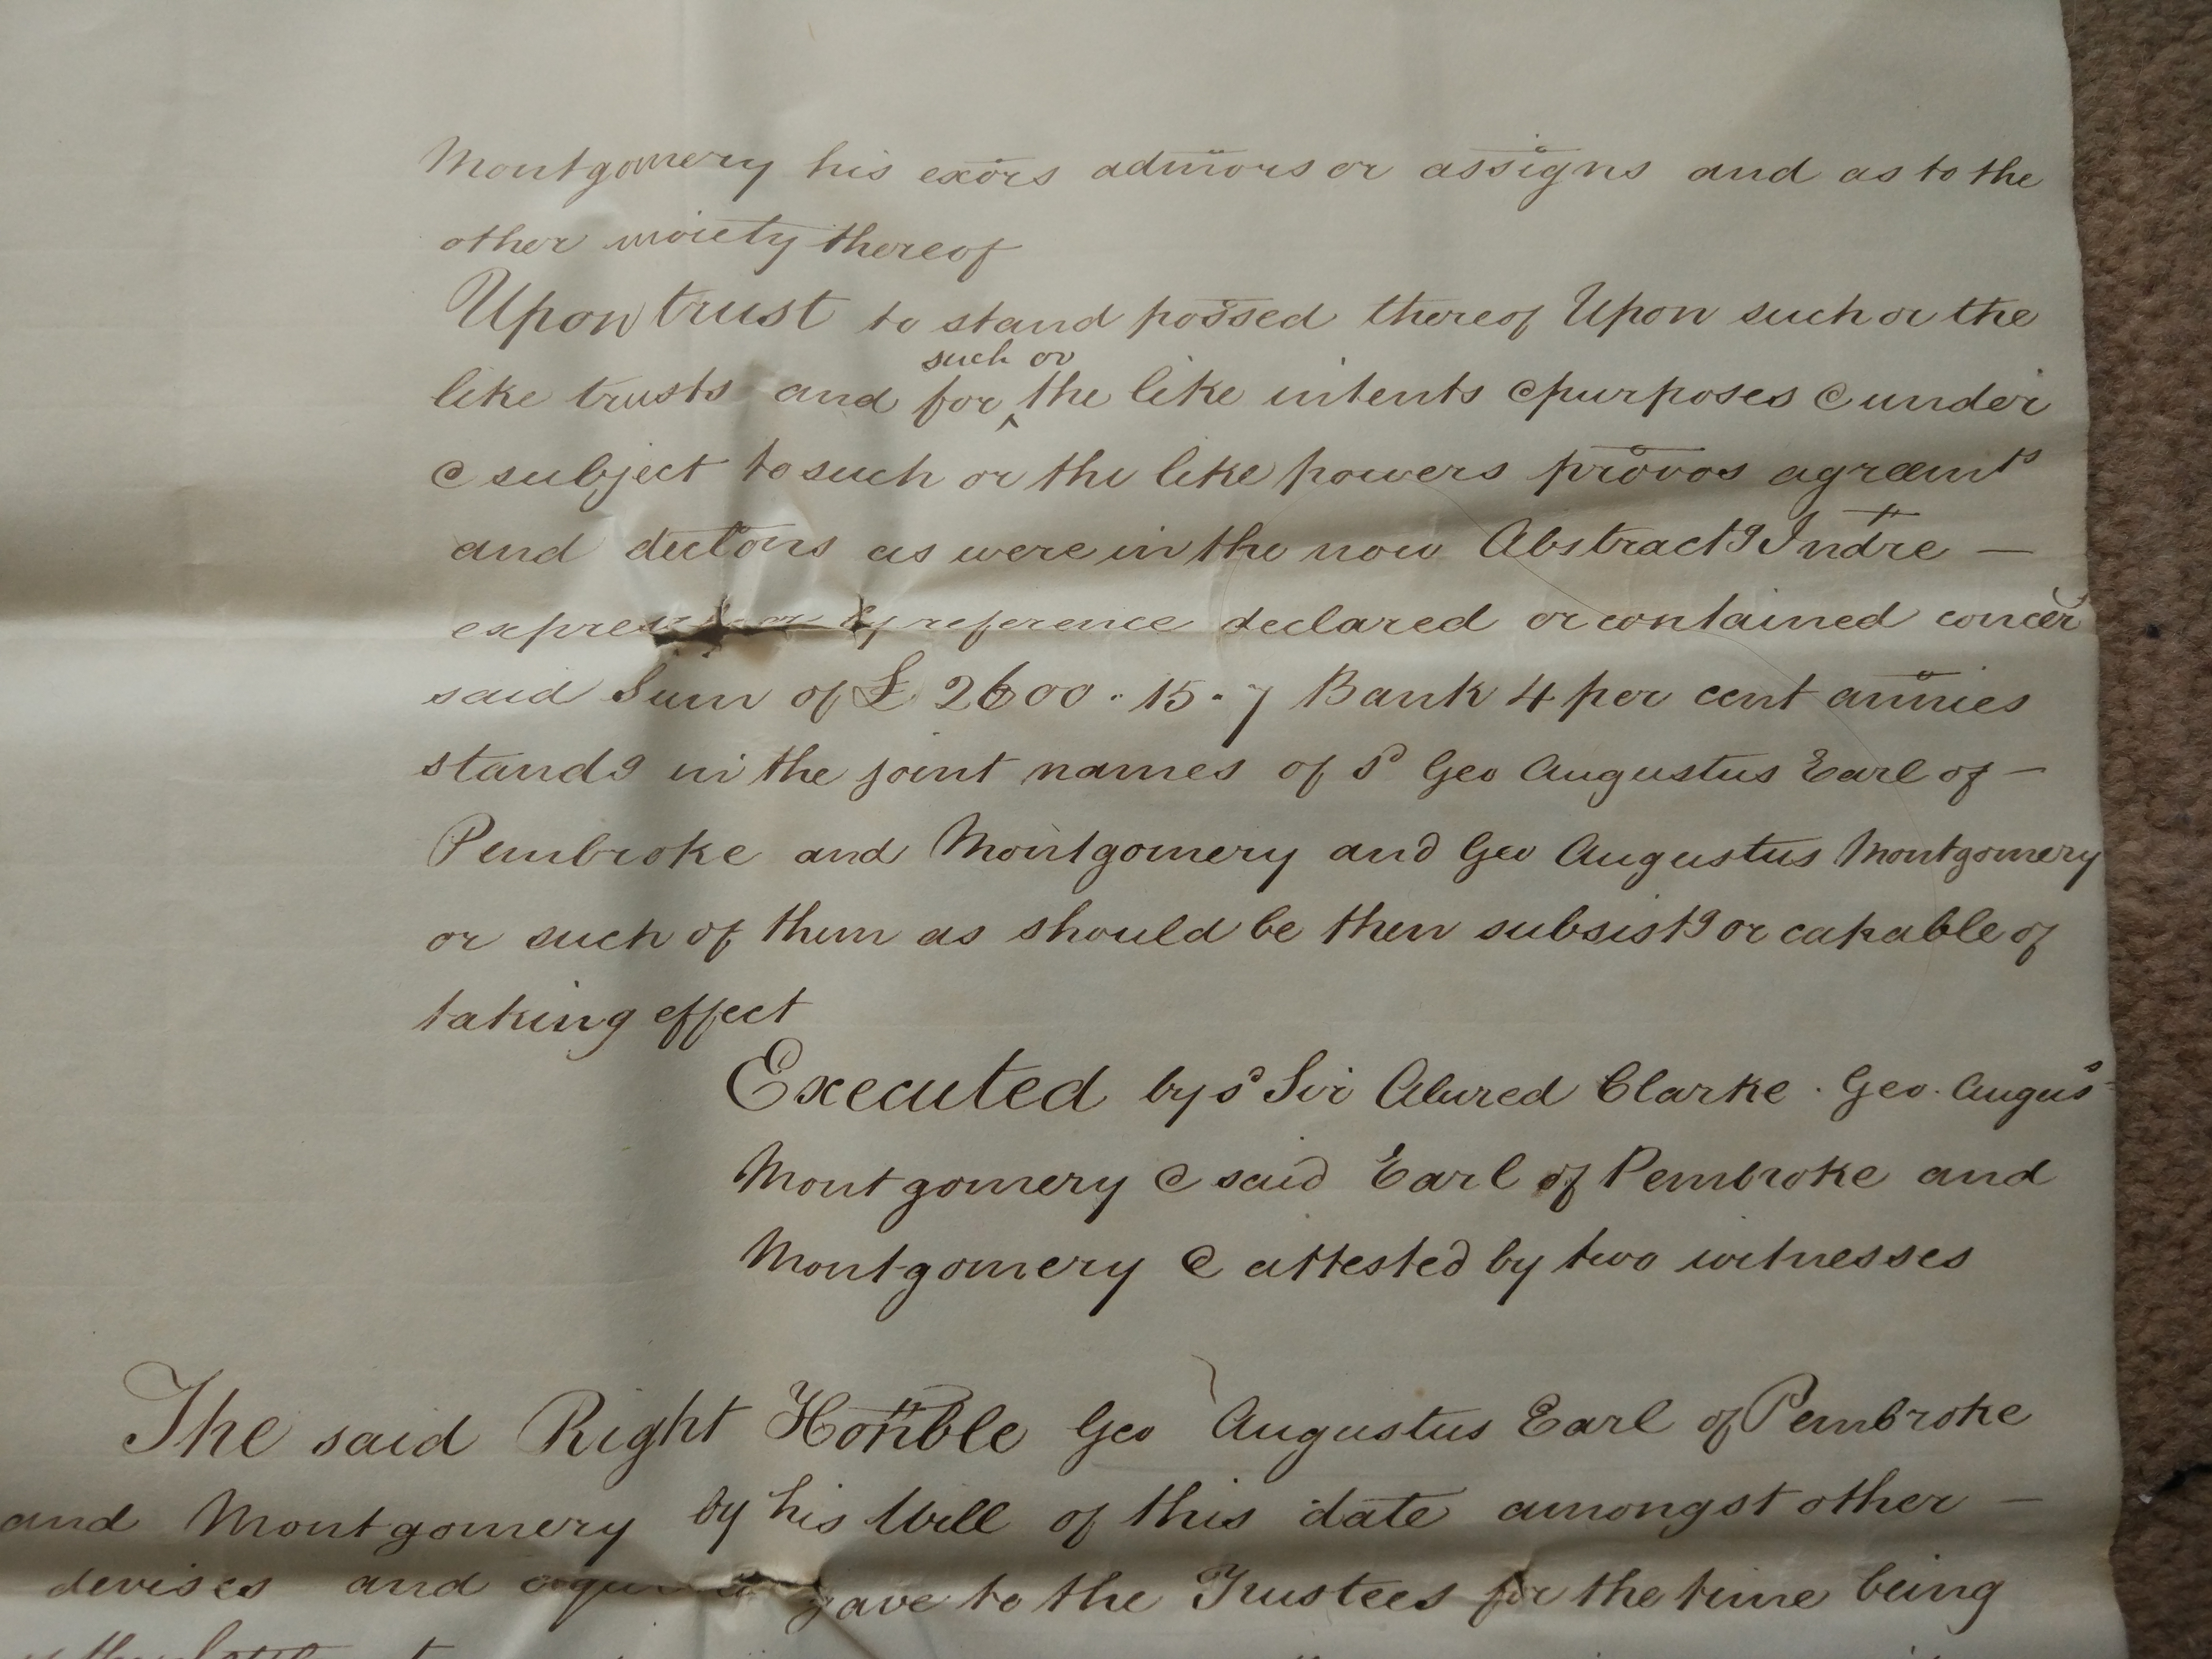 Montgomery his exors admors or assigns and as to the
other moiety thereof
Upon trust to stand possed thereof Upon such or the
such or
like trusts and for ^ the like intents & purposes & under
& subject to such or the like powers provos agreemts
and declons as were in the now Abstractg Indre —
expressed or by reference declared or contained concerg
said Sum of £ 2600 .. 15 . 7 Bank 4 per cent annies
standg in the joint names of sd Geo Augustus Earl of —
Pembroke and Montgomery and Geo Augustus Montgomery
or such of them as should be then subsistg or capable of
taking effect
Executed by sd Sir Alured Clarke . Geo. Augus
Montgomery & said Earl of Pembroke and
Montgomery & attested by two witnesses
The said Right Honble Geo Augustus Earl of Pembroke
and Montgomery by his Will of this date amongst other —
devises and gave to the Trustees for the time being